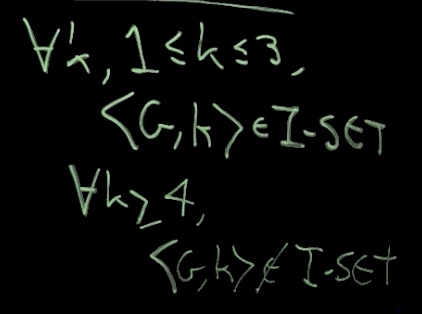 ∀k, 1 ≤ k ≤ 3,
<G,k> ∈ I-SET
∀k ≥ 4,
<G,k> ∉ I-SET